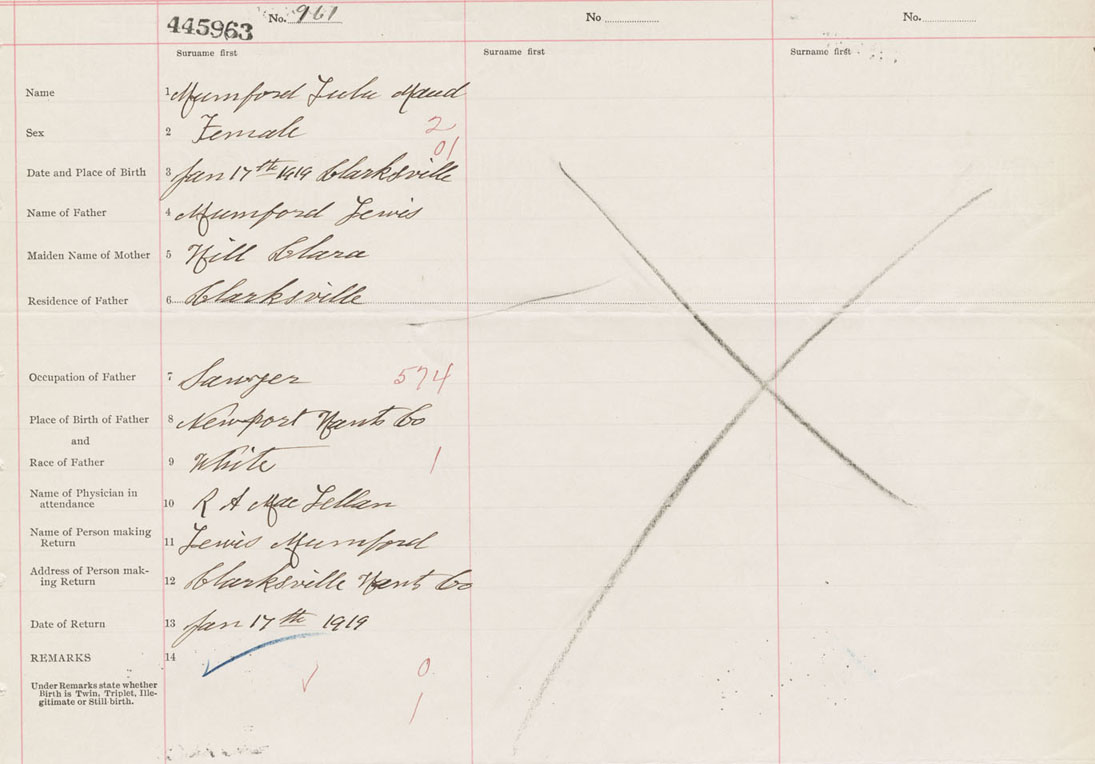 445963 No. 961 No No.
Surname first Surname first Surname first
Name 1 Mumford Lulu Maud
Sex 2 Female 2
01
Date and Place of Birth 3 Jan 17th 1919 Clarksville
Name of Father 4 Mumford Lewis
Maiden Name of Mother 5 Hill Clara
Residence of Father 6 Clarksville
Occupation of Father 7 Sawyer 574
Place of Birth of Father 8 Newport Hants Co
and
Race of Father 9 White 1
Name of Physician in
attendance 10 R A MacLellan
Name of Person making
Return 11 Lewis Mumford
Address of Person mak-
ing Return 12 Clarksville Hants Co
Date of Return 13 Jan 17th 1919
REMARKS 14
0
Under Remarks state whether
Birth is Twin, Triplet, Ille-
gitimate or Still-birth.
1